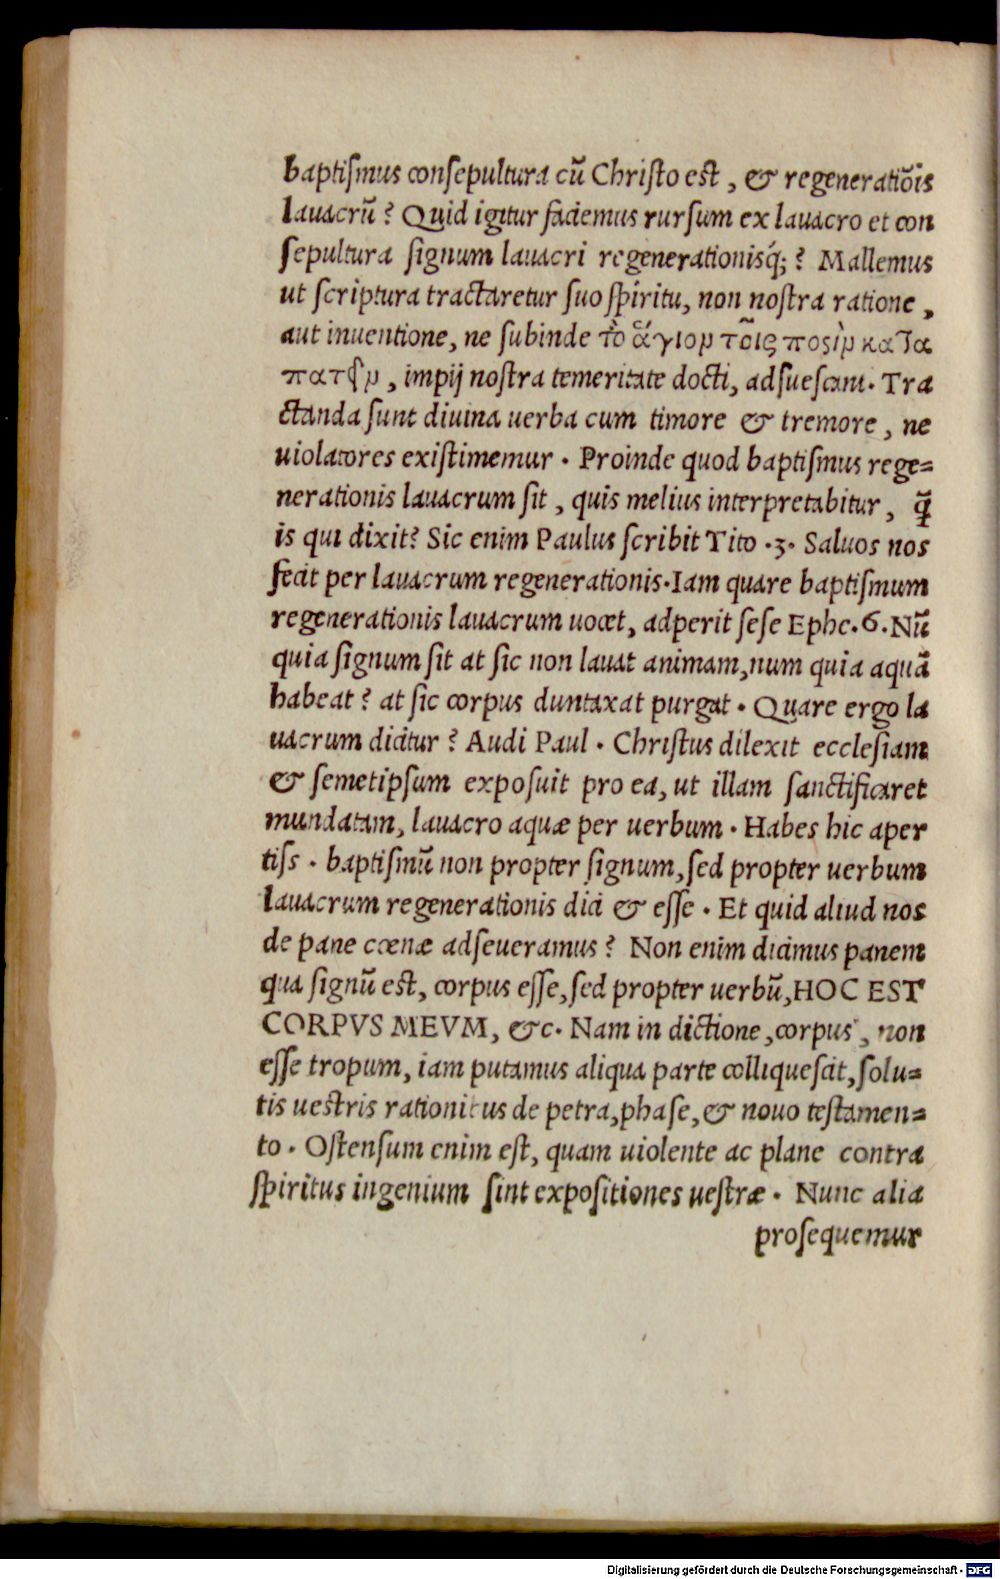 baptiſmus conſepultura cũ Chriſto est, & regeneratiõis
lauacrũ? Quid igitur faciemus rurſum ex lauacro et con
ſepultura ſignum lauacri regenerationisq́;? Mallemus
ut ſcriptura tractaretur ſuo ſpiritu, non nostra ratione,
aut inuentione, ne ſubinde τὸ ἅγιον τοῖς ποσὶν
impij nostra temeritate docti, adſueſcant. Tra
ctanda ſunt diuina uerba cum timore & tremore, ne
uiolatores existimemur. Proinde quod baptiſmus rege=
nerationis lauacrum ſit, quis melius interpretabitur, q̃
is qui dixit? Sic enim Paulus ſcribit Tito .3. Saluos nos
fecit per lauacrum regenerationis. Iam quare baptiſmum
regenerationis lauacrum uocet, adperit ſeſe Ephe. 6. Nũ
quia ſignum ſit at ſic non lauat animam, num quia aquã
habeat? at ſic corpus duntaxat purgat. Quare ergo la
uacrum dicitur? Audi Paul. Chriſtus dilexit eccleſiam
& ſemetipſum expoſuit pro ea, ut illam ſanctificaret
mundatam, lauacro aquæ per uerbum. Habes hic aper
tiſs. baptiſmũ non propter ſignum, ſed propter uerbum
lauacrum regenerationis dici & eſſe. Et quid aliud nos
de pane cœnæ adſeueramus? Non enim dicimus panem
qua ſignũ est, corpus eſſe, ſed propter uerbũ, HOC EST
CORPVS MEVM, &c. Nam in dictione, corpus, non
eſſe tropum, iam putamus aliqua parte colliqueſcit, ſolu=
tis uestris rationibus de petra, phaſe, & nouo testamen=
to. Oſtenſum enim est, quam uiolente ac plane contra
ſpiritus ingenium ſint expoſitiones uestræ. Nunc alia
proſequemur
Digitalisierung gefördert durch die Deutsche Forschungsgemeinschaft - DFG